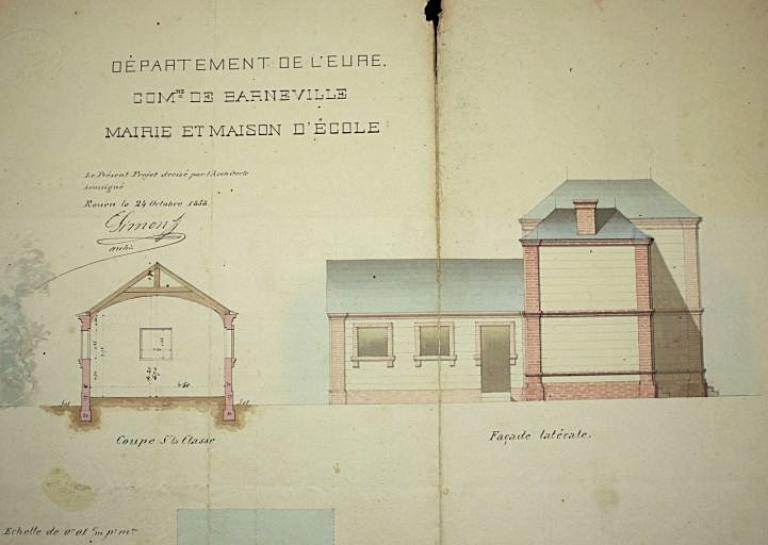 DÉPARTEMENT DE L'EURE.
COM^NE DE BARNEVILLE
MAIRIE ET MAISON D'ÉCOLE
Le Présent Projet dressé par l'Architecte
soussigné
Rouen le 24 Octobre 1858
Simon
archte
Coupe S^r la Classe
Façade latérale.
Echelle de 0^m 01 c/m p^r m^re